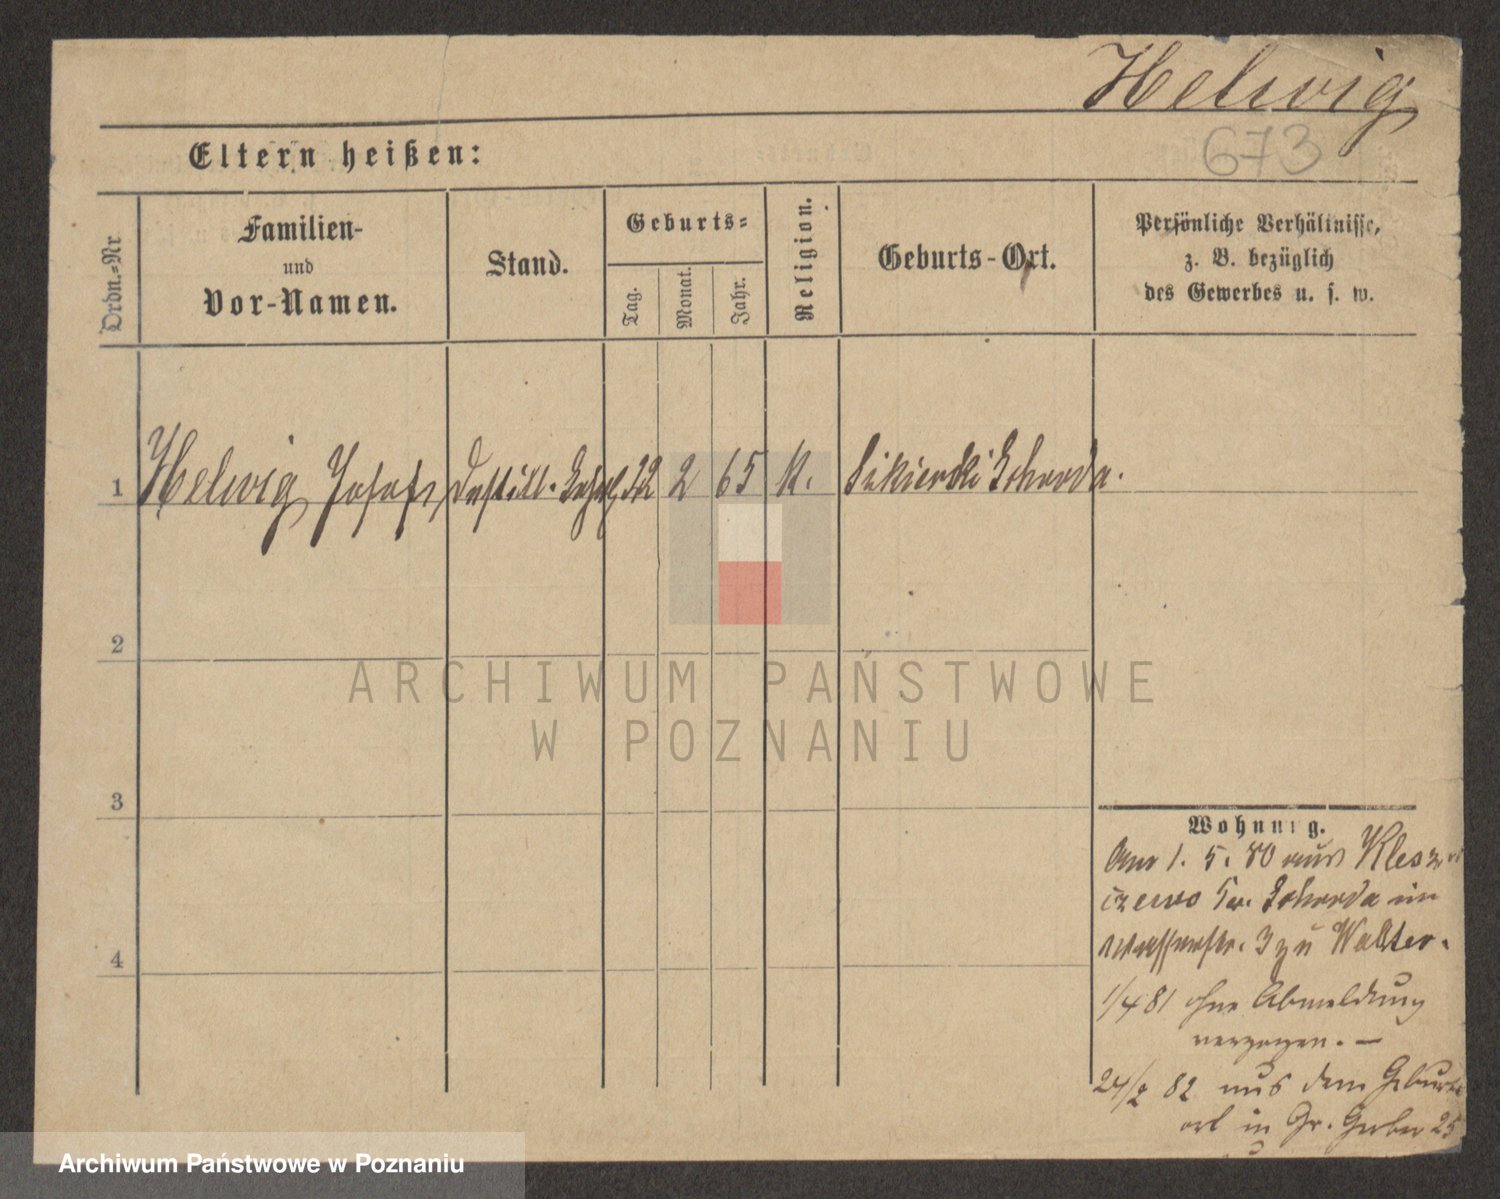 Helwig
673
Eltern heißen:
Ordn.=Nr
Familien-
und
Vor-Namen.
Stand.
Geburts=
Tag.
Monat.
Jahr.
Religion.
Geburts-Ort.
Persönliche Verhältnisse,
z. B. bezüglich
des Gewerbes u. s. w.
1 Helwig Josef, Destill. 22 2 65 K. Sikierki Schroda.
2
3
4
Wohnung.
Am 1. 5. 80 aus Klesz
czewo Kr. Schroda in
Wasserstr. 3 zu Walter.
1/4 81 ohne Abmeldung
verzogen. —
24/2 82 aus dem Geburts
ort in Gr. Gerber 25
ARCHIWUM PAŃSTWOWE
W POZNANIU
Archiwum Państwowe w Poznaniu